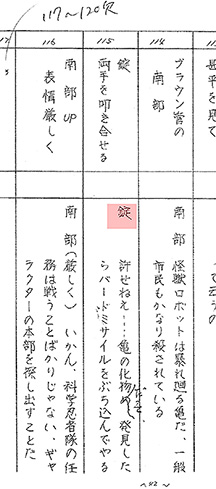 117〜120欠
114
ブラウン管の
南部
南部 怪獣ロボットは暴れ廻る亀だ、一般
市民もかなり殺されている
115
錠
両手を叩き合せる
錠 許せねえ……亀の化物め、発見した
らバードミサイルをぶち込んでやる
116
南部 UP
表情厳しく
南部(厳しく) いかん、科学忍者隊の任
務は戦うことばかりじゃない、ギャ
ラクターの本部を探し出すことだ